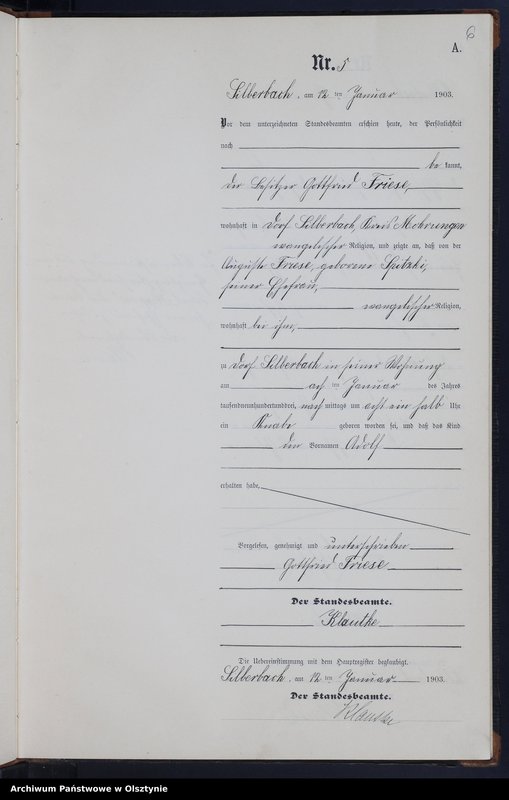 6
A.
Nr. 5
Silberbach, am 12 ten Januar 1903.
Vor dem unterzeichneten Standesbeamten erschien heute, der Persönlichkeit
nach
be kannt,
der Besitzer Gottfried Friese,
wohnhaft in Dorf Silberbach, Kreis Mohrungen
evangelischer Religion, und zeigte an, daß von der
Auguste Friese, geborene Spitzki,
seiner Ehefrau,
evangelischer Religion,
wohnhaft bei ihm,
zu Dorf Silberbach in seiner Wohnung
am acht ten Januar des Jahres
tausendneunhundertunddrei, nach mittags um acht ein halb Uhr
ein Knabe geboren worden sei, und daß das Kind
den Vornamen Adolf
erhalten habe,
Vorgelesen, genehmigt und unterschrieben
Gottfried Friese
Der Standesbeamte.
Klautke
Die Uebereinstimmung mit dem Hauptregister beglaubigt.
Silberbach, am 12 ten Januar 1903.
Der Standesbeamte.
Klautke
Archiwum Państwowe w Olsztynie